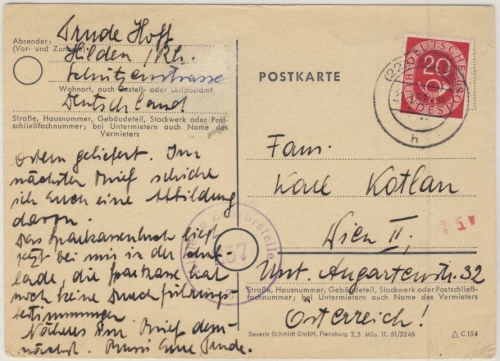 Absender:
(Vor- und Zuname)
Trude Hoff
Hilden / Rh.
Schützenstrasse
Wohnort, auch Zustell- oder Leitpostamt
Deutschland
Straße, Hausnummer, Gebäudeteil, Stockwerk oder Post-
schließfachnummer; bei Untermietern auch Name des
Vermieters
Ostern geliefert. Im
nächsten Brief schicke
ich Euch eine Abbildung
davon.
Das Sparkassenbuch liegt
jetzt bei mir in der
lade, die Sparkasse hat
noch keine Durchführungs-
bestimmungen
Näheres im Brief dem-
nächst. Bussi Eure Trude.
POSTKARTE
DEUTSCHE BUNDESPOST
20
(22
h
Fam.
Karl Kotlan
Wien II,
Unt. Augartenstr. 32
Straße, Hausnummer, Gebäudeteil, Stockwerk oder Postschließ-
fachnummer; bei Untermietern auch Name des Vermieters
Österreich!
Severin Schmidt GmbH., Flensburg 2,5 Mio. 11. 51/2246
C 154
257